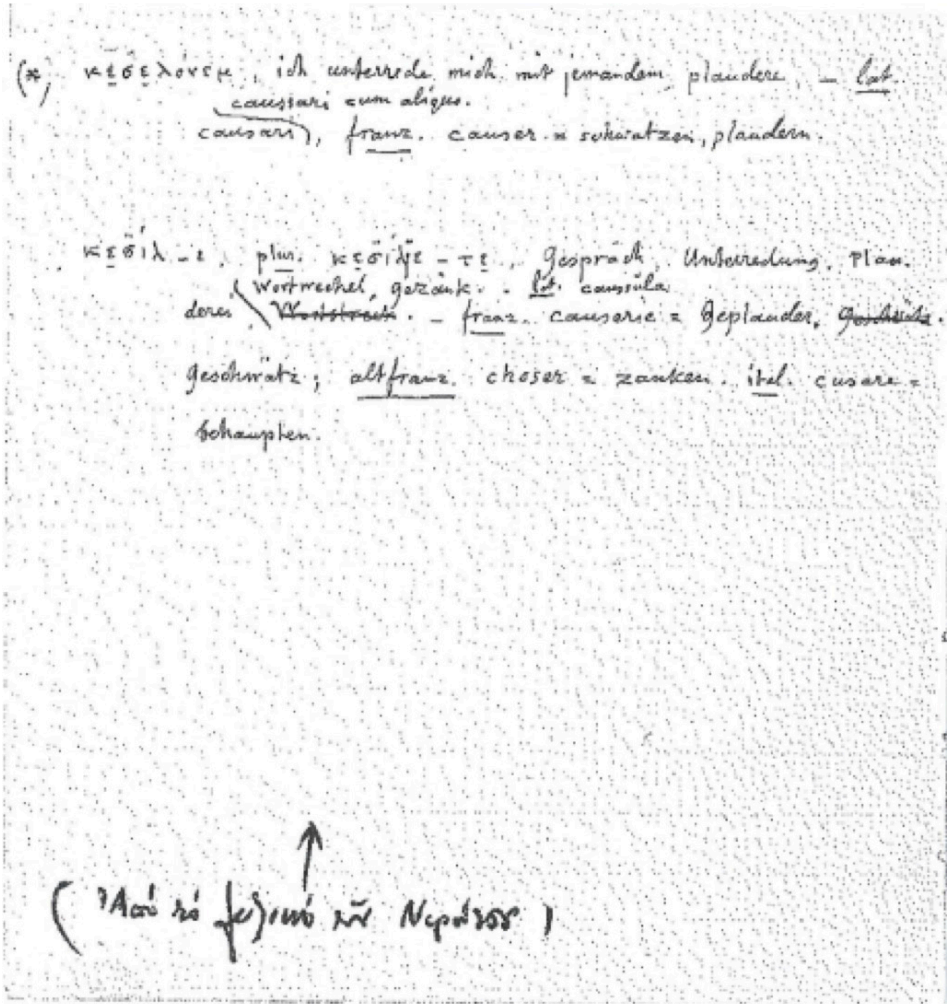 (* κε̱σ̈ε̱λόνεμ, ich unterrede mich mit jemandem, plaudere – lat.
caussari cum aliquo.
causari), franz. causer = schwatzen, plaudern.
κε̱σ̈ίλ-ι, plur. κε̱σ̈ίλjε-τε̱, Gespräch, Unterredung, Plau-
Wortwechsel, Gezänk. . lat. caussula
derei Wortstreit. – franz. causerie = Geplauder,
Geschwätz; altfranz. choser = zanken. ital. cusare =
behaupten.
(Ἀπό τό λεξικό τοῦ Νεράτζη)